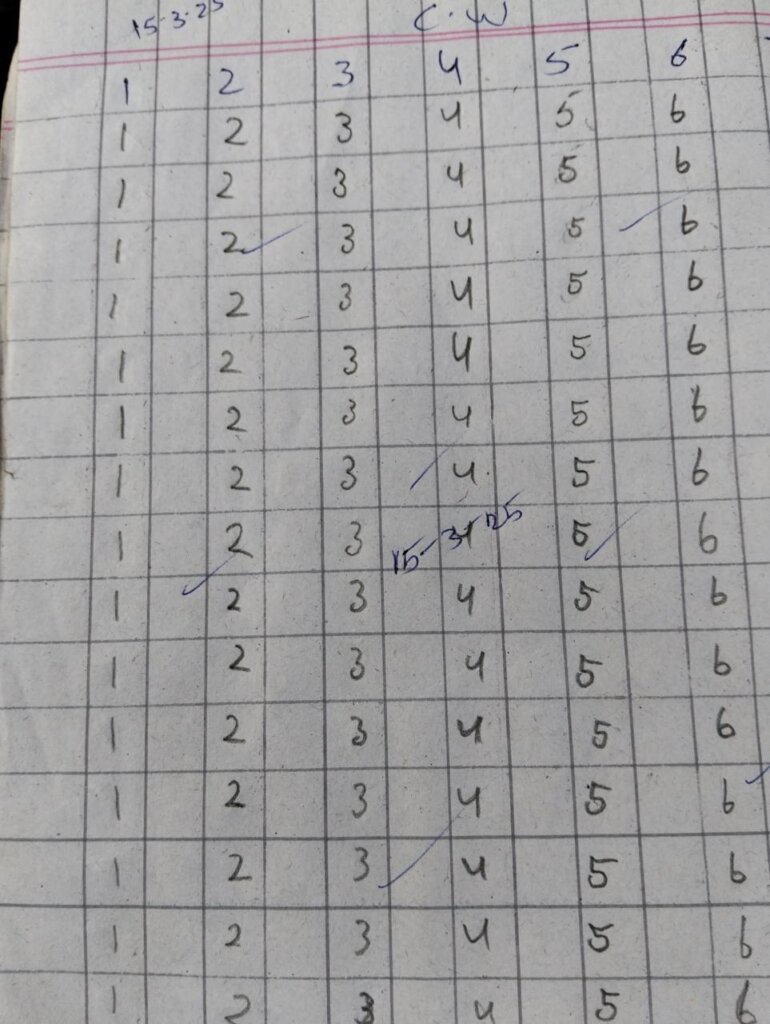 15-3-25 C.W
1 2 3 4 5 6
1 2 3 4 5 6
1 2 3 4 5 6
1 2 3 4 5 6
1 2 3 4 5 6
1 2 3 4 5 6
1 2 3 4 5 6
1 2 3 4 5 6
1 2 3 4 5 6
15-3-25
1 2 3 4 5 6
1 2 3 4 5 6
1 2 3 4 5 6
1 2 3 4 5 6
1 2 3 4 5 6
1 2 3 4 5 6
1 2 3 4 5 6